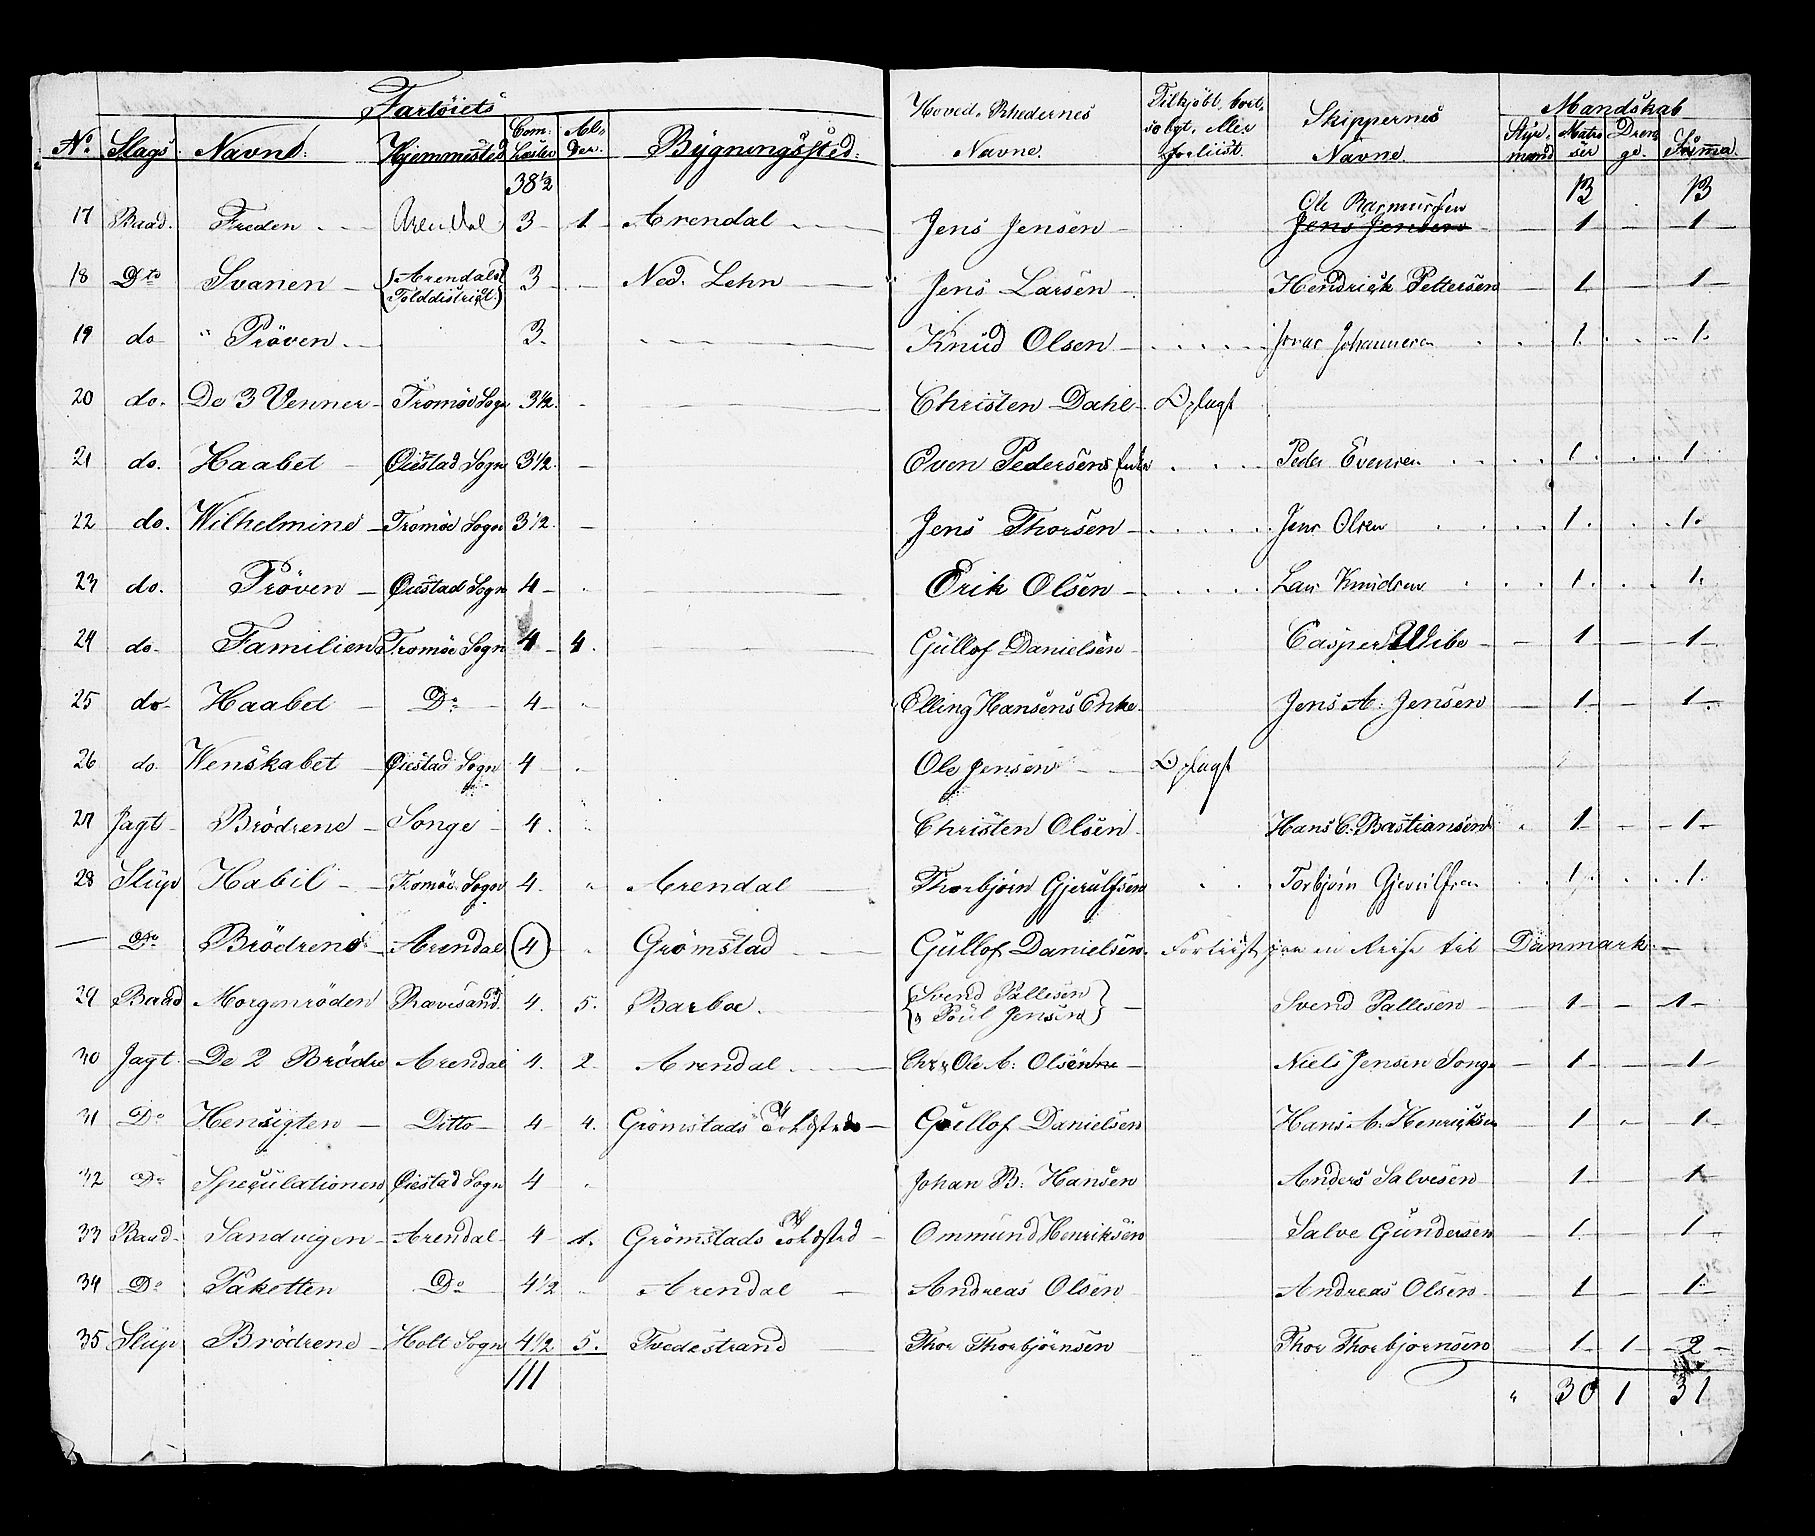 Fartöiets
Mandskab
No. Slags. Navne. Hjemmested Com: Læster Al- der. Bÿgningssted: Hoved-Rhedernes Navne. Tilkjöbt, bort- solgt, eller forliist. Skippernes Navne. Styr- mand Matro- ser Dren- ge. Summa.
38 1/2 13 13
17 Baad. Freden Arendal 3 1. Arendal Jens Jensen Ole Rasmussen Jens Jensen 1 1
18 Dto Svanen (Arendals Tolddistrict) 3 Ned. Lehn Jens Larsen Hendrick Pettersen 1 1
19 do " Pröven 3 Knud Olsen Johannesen 1 1
20 do. De 3 Venner Tromöe Sogn 3 1/2 Christen Dahl Oplagt
21 do. Haabet Öiestad Sogn 3 1/2 Even Pedersens Enke Peder Evensen 1 1
22 do. Wilhelmine Tromöe Sogn 3 1/2 Jens Thorsen Jens Olsen 1 1
23 do. Pröven Öiestad Sogn 4 Erik Olsen Lars Knudsen 1 1
24 do. Familien Tromöe Sogn 4 4. Gullof Danielsen Casper Wibe 1 1
25 do. Haabet Do 4 Elling Hansens Enke Jens A. Jensen 1 1
26 do. Wenskabet Öiestad Sogn 4 Ole Jensen Oplagt
27 Jagt Brödrene Songe 4. Christen Olsen Hans C. Bastiansen 1 1
28 Slup Habil Tromöe Sogn 4. Arendal Thorbjörn Gjerulfsen Torbjörn Gjerulfsen 1 1
— Do Brödrene Arendal 4 Grömstad Gullof Danielsen. Forliist paa en Reise til Danmark
29 Baad Morgenröden Ravesand 4. 5. Barboe. {Svend Pallesen & Poul Jensen} Svend Pallesen 1 1
30 Jagt De 2 Brödre Arendal 4. 2. Arendal Chr. & Ole A. Olsen Niels Jensen Songe 1 1
31 Do Hensigten Ditto 4 4. Grömstads Toldsted Gullof Danielsen Hans A. Henriksen 1 1
32 Do Speculationen Öiestad Sogn 4 Johan B. Hansen Anders Salvesen 1 1
33 Baad Sandvigen Arendal 4 1. Grömstads Toldsted Ommund Henriksen Salve Gundersen 1 1
34 Do Paketten Do 4 1/2 Arendal Andreas Olsen Andreas Olsen 1 1
35 Slup Brödrene Holt Sogn 4 1/2 5. Tvedestrand Thor Thorbjörnsen Thor Thorbjornsen 1 1 2
111 " 30 1 31